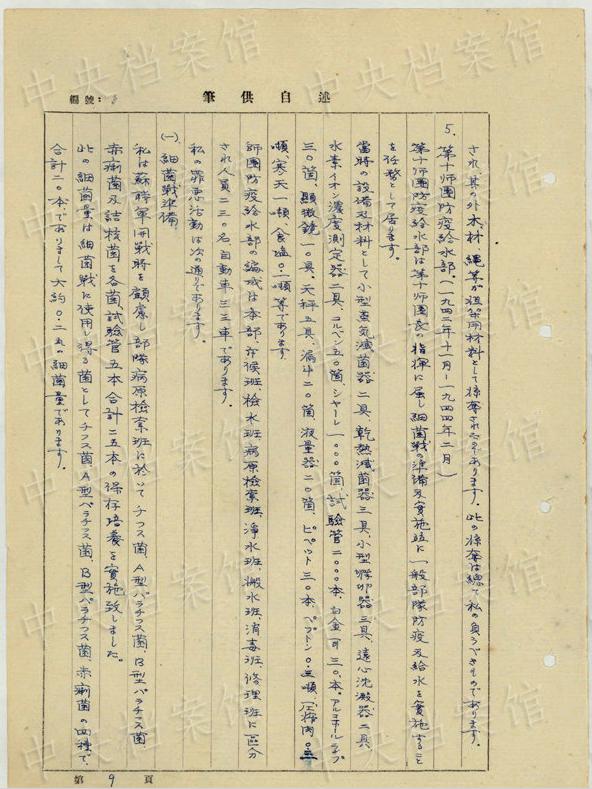 述自供筆
編號：
され、其の外木材、縄等が担架用材料として掠奪されたのであります。此の掠奪は総て私の負うべきものであります。
5. 第十師團防疫給水部（一九四二年十一月—一九四四年二月）
第十師團防疫給水部は第十師團長の指揮に屬し細菌戰の準備及實施並に一般部隊防疫及給水を實施すること
を任務として居ります。
當時の設備及材料として小型蒸気滅菌器二具、乾熱滅菌器三具、小型孵卵器三具、遠心沈澱器二具、
水素イオン濃度測定器二具、コルベン五〇箇、シャーレ一〇〇〇箇、試験管二〇〇〇本、白金耳三〇本、アルコールランプ
三〇箇、顕微鏡一〇具、天秤五具、漏斗二〇箇、液量器二〇箇、ピペット三〇本、ペプトン〇.
噸、寒天一噸、食塩〇.一噸等であります。
師團防疫給水部の編成は本部、斥候班、検水班、病原検索班、淨水班、搬水班、消毒班、修理班に区分
され人員二三〇名、自動車三三車であります。
私の罪悪活動は次の通りであります。
(一) 細菌戰準備
私は蘇時軍開戰時を顧慮し部隊病原検索班に於いてチフス菌、A型パラチフス菌、B型パラチフス菌
赤痢菌及結核菌を各菌試験管五本合計二五本の保存培養を實施致しました。
此の細菌量は細菌戰に使用し得る菌としてチフス菌、A型パラチフス菌、B型パラチフス菌、赤痢菌の四種で、
合計二〇本でありまして大約〇.二瓦の細菌量であります。
第9頁
中央档案馆